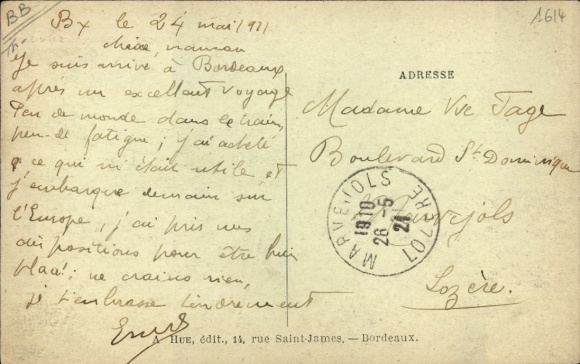 BB
1614
Bx le 24 mai 1921
Chère maman
Je suis arrivé à Bordeaux
après un excellent voyage
Peu de monde dans le train,
peu de fatigue ; j'ai acheté
ce qui m'était utile et
j'embarque demain sur
l'Europe, j'ai pris mes
dispositions pour être bien
placé ; ne crains rien,
je t'embrasse tendrement
ADRESSE
Madame Vve Tage
Boulevard St Dominique
Marvejols
Lozère.
MARVEJOLS LOZERE
19 10
26 - 5
21
A HUE, édit., 14, rue Saint-James. — Bordeaux.